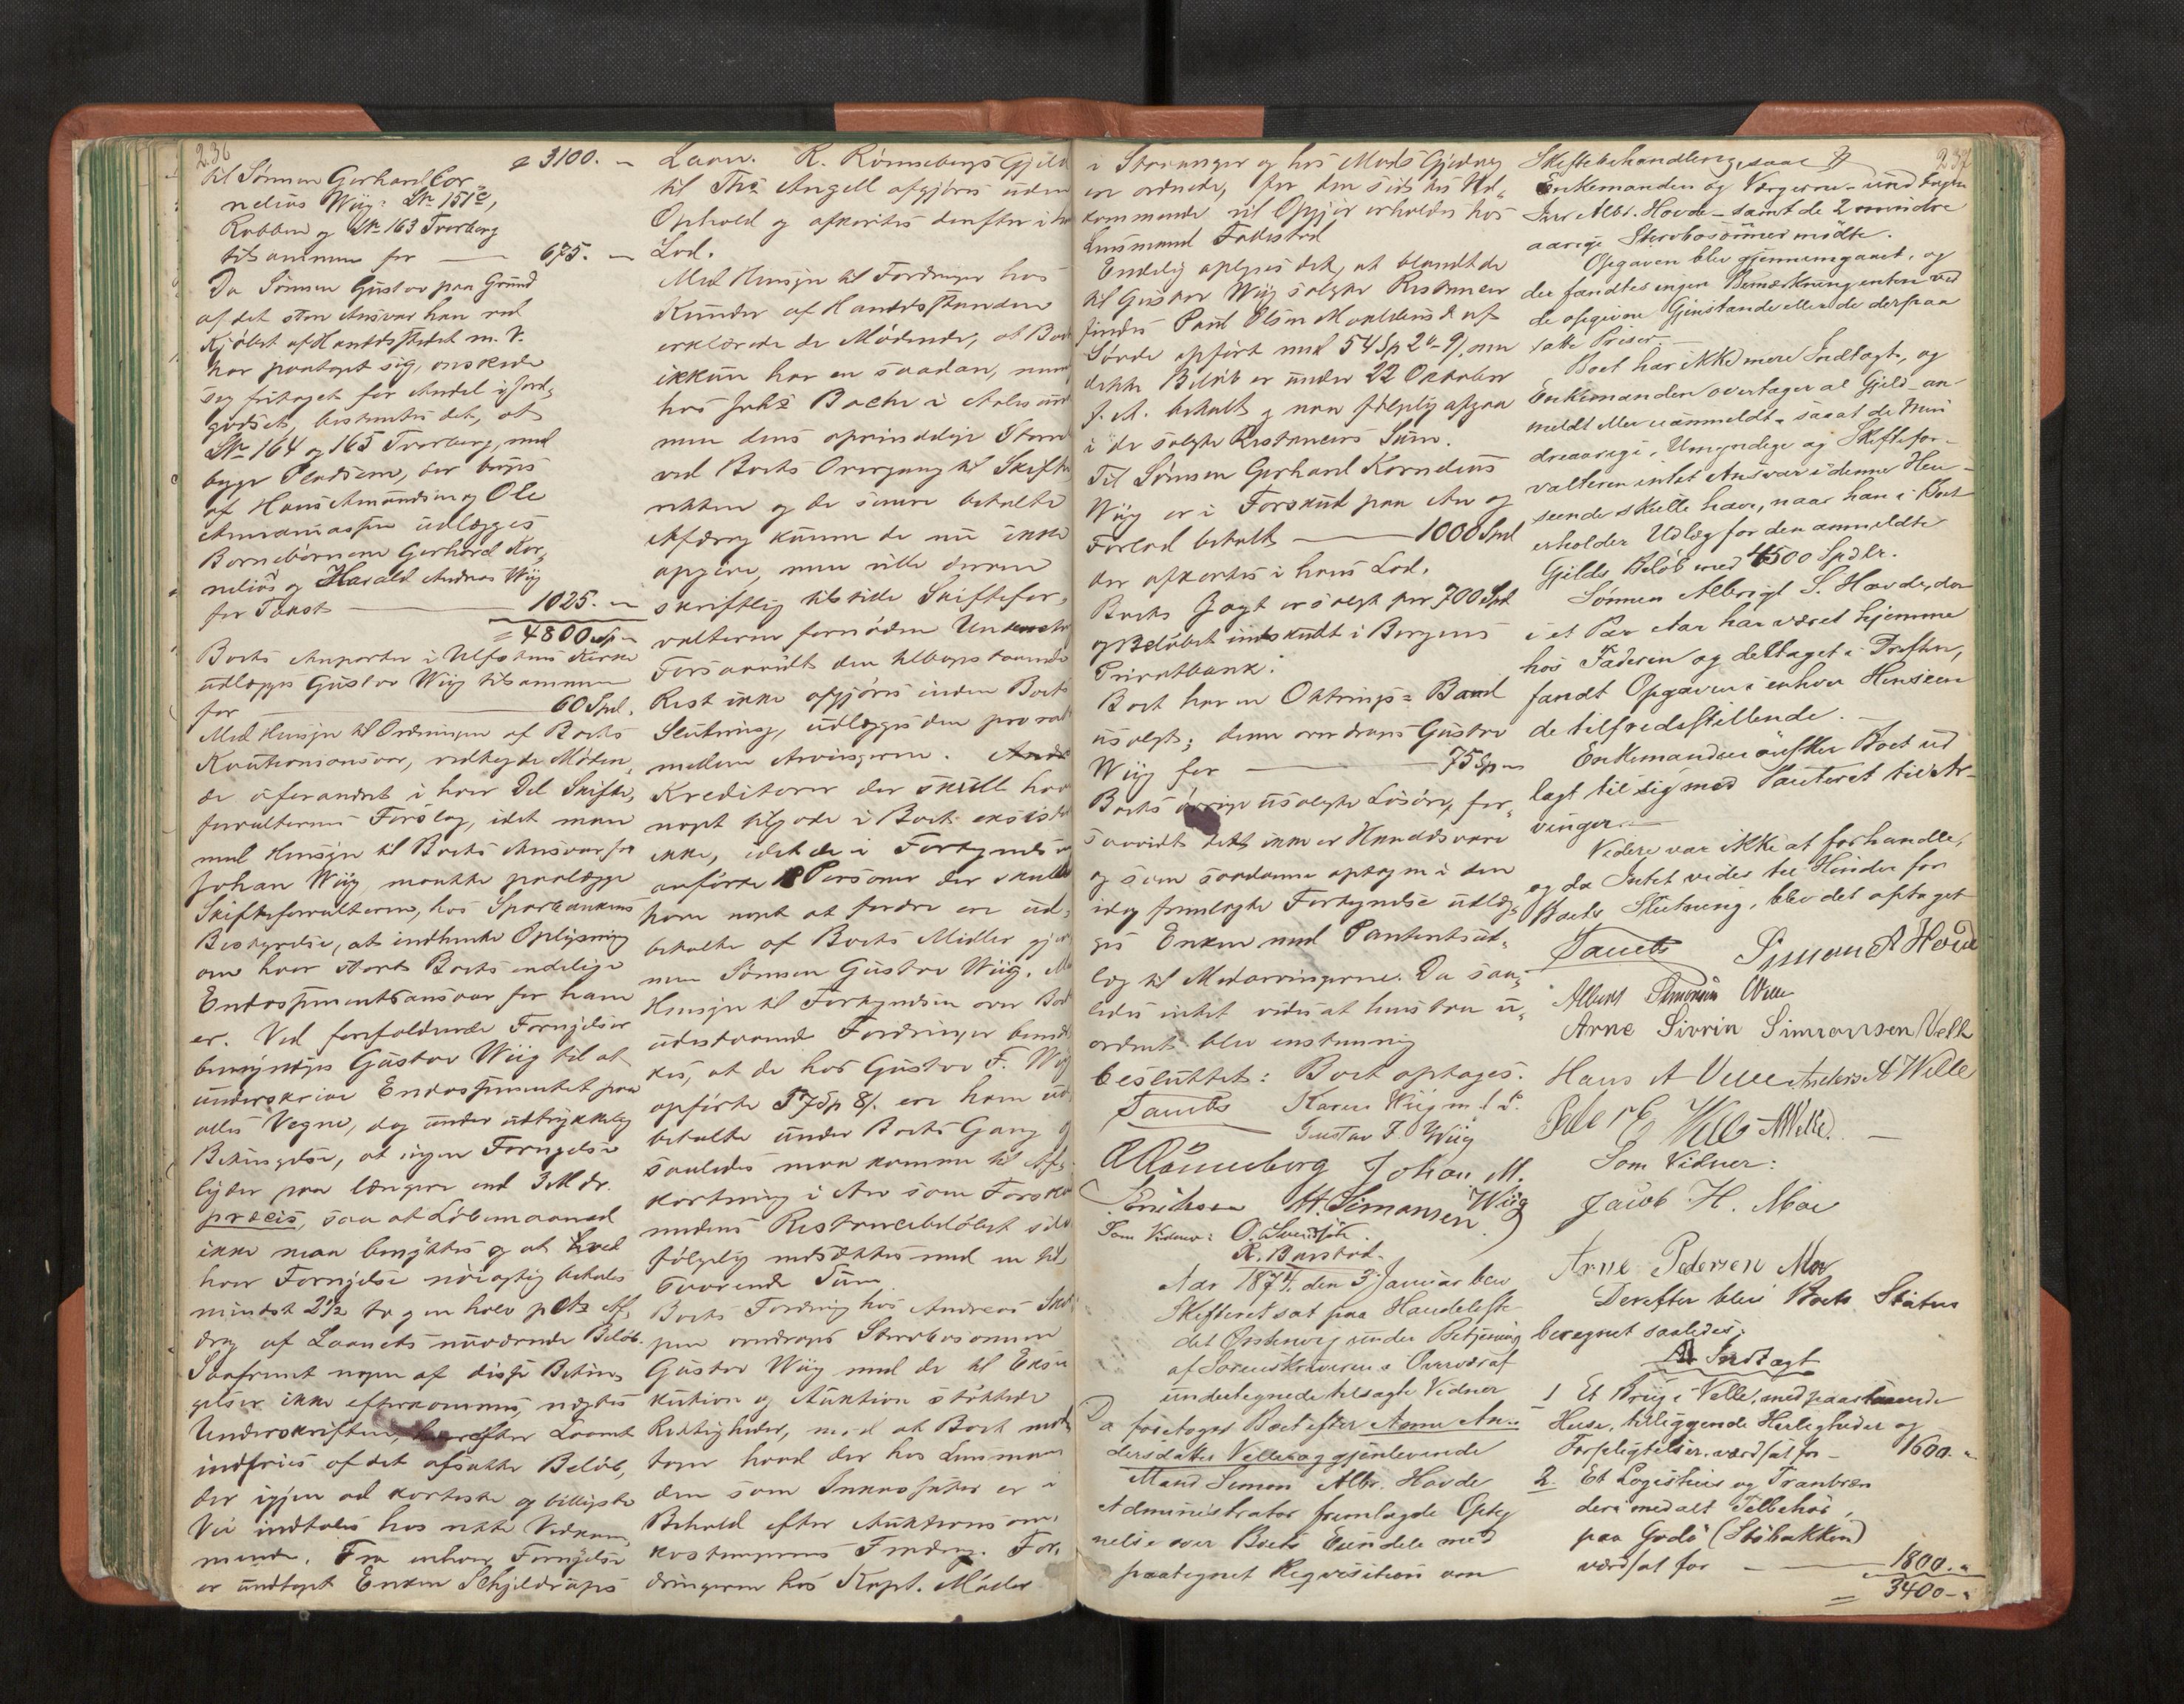 236
" 3100. "
til Sønnen Gerhard Cor
nelius Wiig: No 151,
Rabben og No 163 Tverberg
tilsammen for — 675. "
Da Sønnen Gustav paa Grund
af det store Ansvar han ved
Kjøbet af Handelsstedet m. V.
har paataget sig, ønskede
sig fritaget for Andel i Jord,
godset, bestemtes det, at
No 164 og 165 Tverberg, med
Pladsene, der bruges
af Hans Amundsen og Ole
udlægges
Børnebørnene Gerhard Kor,
nelius og Harald Andreas Wiig
for Taxt — 1025. "
= 4800 Sp "
Boets Anparter i Ulfstens Kirke
udlægges Gustav Wiig tilsammen
for — 60 Spd.
Med Hensyn til Ordningen af Boets
Kautionsansvar, vedtoges Møden,
de uforandret i hver Del Skifte,
forvalterens Forslag, idet man
med Hensyn til Boets Ansvar for
Johan Wiig, maatte paalægge
Skifteforvalteren, hos Sparebankens
Bestyrelse, at indhente Oplysning
om hvor stort Boets endelige
Endossementsansvar for ham
er. Ved forefaldende Fornyelser
bemyndiges Gustav Wiig til at
underskrive Endossementet paa
alles Vegne, dog under udtrykkelig
Betingelse, at ingen Fornyelse
lyder paa længere end 3 Mdr.
præcis, saa at Løbemaaned
ikke maa benyttes og at ved
hver Fornyelse nøiagtig betales
mindst 2½ to og en halv pCts Af,
drag af Laanets nuværende Beløb.
Saafremt nogen af disse Betin,
gelser ikke efterkommes, nægtes
Underskriften, hvorefter Laanet
indfries af det afsatte Beløb,
der igjen ad korteste og billigste
Vei indtales hos rette Vedkom,
mende. Fra enhver Fornyelse
er undtaget Enken Schjelderups
Laan. R. Rønnebergs Gjeld
til Ths Angell afgjøres uden
Ophold og afkortes derefter i
Lod.
Med Hensyn til Fordringer hos
Kunder af Handelsstanden
erklærede de Mødende, at Boet
ikkun har en saadan, nem
hos Johs Bache i Aalesund
men dens oprindelige Størr
ved Boets Overgang til Skifte
retten og de senere betalte
Afdrag kunne de nu ikke
opgive, men ville derom
skriftlig tilstille Skiftefor,
valteren fornøden Underretn
Forsaavidt den tilbagestaaende
Rest ikke opgjøres inden Boets
Slutning, udlægges den pro rat
mellem Arvingerne.
Kreditorer der skulle have
noget tilgode i Boet existere
ikke, idet de i Fortegnelsen
anførte 18 Personer der skulle
have noget at fordre ere ud,
betalte af Boets Midler gjen
nem Sønnen Gustav Wiig. Med
Hensyn til Fortegnelsen over Boets
udestaaende Fordringer bemær
kes, at de hos Gustav F. Wiig
opførte 57 Sp 8/. ere ham ud
betalte under Boets Gang og
saaledes maa komme til Af,
kortning i Arv som Forskud
medens Restancebeløbet
følgelig nedsættes med en til,
svarende Sum
Boets Fordring hos Andreas
overdrages Stervbosønnen
Gustav Wiig med de til Exe
kution og Auktion støttede
Rettigheder, mod at Boet mod
tager hvad der hos Lensman
den som Inkassator er i
Behold efter Auktionsom,
kostningernes Fradrag. For,
dringerne hos Kapt. Møller
i Stavanger og hos Mads Gjedrey
ere ordnede, for den sidstes Ved,
kommende vil Opgjør erholdes hos
Lensmand
Endelig oplyses det, at blandt de
til Gustav Wiig solgte Restancer
findes Paul Olsen af
Sørde opført med 54 Sp 2 " 9/. men
dette Beløb er under 22 Oktober
f. A. betalt og maa følgelig afgaa
i de solgte Restancers Sum.
Til Sønnen Gerhard Kornelius
Wiig er i Forskud paa Arv og
Forlod betalt — 1000 Spd
der afkortes i hans Lod.
Boets Jagt er solgt for 700 Spd
og Beløbet indskudt i Bergens
Privatbank.
Boet har en Ottrings= Baad
usolgt; denne overdrages Gustav
Wiig for — 75 Sp "
Boets øvrige usolgte Løsøre, for,
saavidt dette ikke er Handelsvare
og som saadanne optagne i den
idag fremlagte Fortegnelse udlæg,
ges Enken mod Panteretsud,
læg til Medarvingerne. Da saa,
ledes intet vides at henstaa u,
ordnet blev enstemmig
besluttet: Boet optages.
Daub Karen Wiig m. f. P.
Gustav F. Wiig
Rønneberg Johan M.
Wiig
Eriksen H. Simonsen
Som Vidner: O. Svendsen.
R. Barstad.
Aar 1874, den 3 Januar blev
Skifteret sat paa Handelsste
det Ørstenvig under Betjening
af Sorenskriveren i Overvær af
undertegnede tilsagte Vidner
Da foretoges Boet efter Anne An=
dersdatter Velle og gjenlevende
Mand Simon Albr. Hovde
Administrator fremlagde Opteg
nelse over Boets Eiendele med
paategnet Reqvisition om
237
Skiftebehandling, saae
Enkemanden og Værgerne – undtagen
Albr. Hovde – samt de 2 mindre
aarige Stervbosønner mødte.
Opgaven blev gjennemgaaet, og
der fandtes ingen Bemærkning enten ved
de opgivne Gjenstande eller de derpaa
satte Priser. –
Boet har ikke mere Indtægt, og
Enkemanden overtager al Gjeld – an
meldt eller uanmeldt – saaat de Min
dreaarige, Umyndige og Skiftefor–
valteren intet Ansvar i denne Hen–
seende skulle have, naar han i Boet
erholder Udlæg for den anmeldte
Gjelds Beløb med 4500 Spdlr.
Sønnen Albrigt S. Hovde, der
i et Par Aar har været hjemme
hos Faderen og deltaget i Driften,
fandt Opgaven i enhver Henseen
de tilfredsstillende. –
Enkemanden ønsker Boet ud
lagt til sig med Panteret til Ar–
vinger –
Videre var ikke at forhandle,
og da Intet vides til Hinder for
Boets Slutning, blev det optaget
Daub Simon A Hovde
Albert Simonsen Velle
Arne Sivrin Simonsen Velle
Hans A Velle Anders A Welle
Peder E Velle AVelle. –
Som Vidner:
Jacob H. Moe
Arne Pedersen Moe
Derefter blev Boets Status
beregnet saaledes:
A Indtægt
1 Et Brug i Velle, med paastaaende
Huse, tilliggende Herligheder og
Forpligtelser. værdsat for – 1600. "
2. Et Logishuus og Tranbræn
deri med alt Tilbehør,
paa Godø (Stöbakken)
værdsat for — 1800. "
= 3400 – "